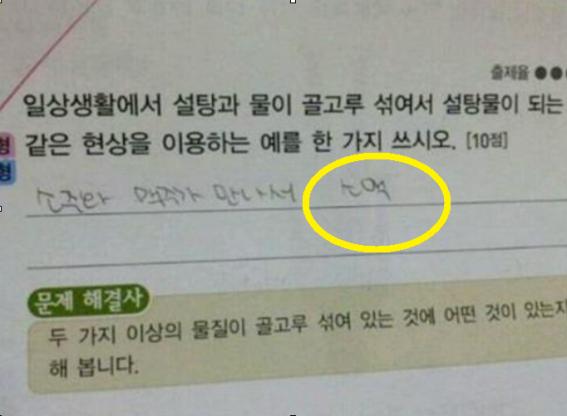 출제율
일상생활에서 설탕과 물이 골고루 섞여서 설탕물이 되는
형 같은 현상을 이용하는 예를 한 가지 쓰시오. [10점]
형
소주와 맥주가 만나서 소맥
문제 해결사
두 가지 이상의 물질이 골고루 섞여 있는 것에 어떤 것이 있는지
해 봅니다.